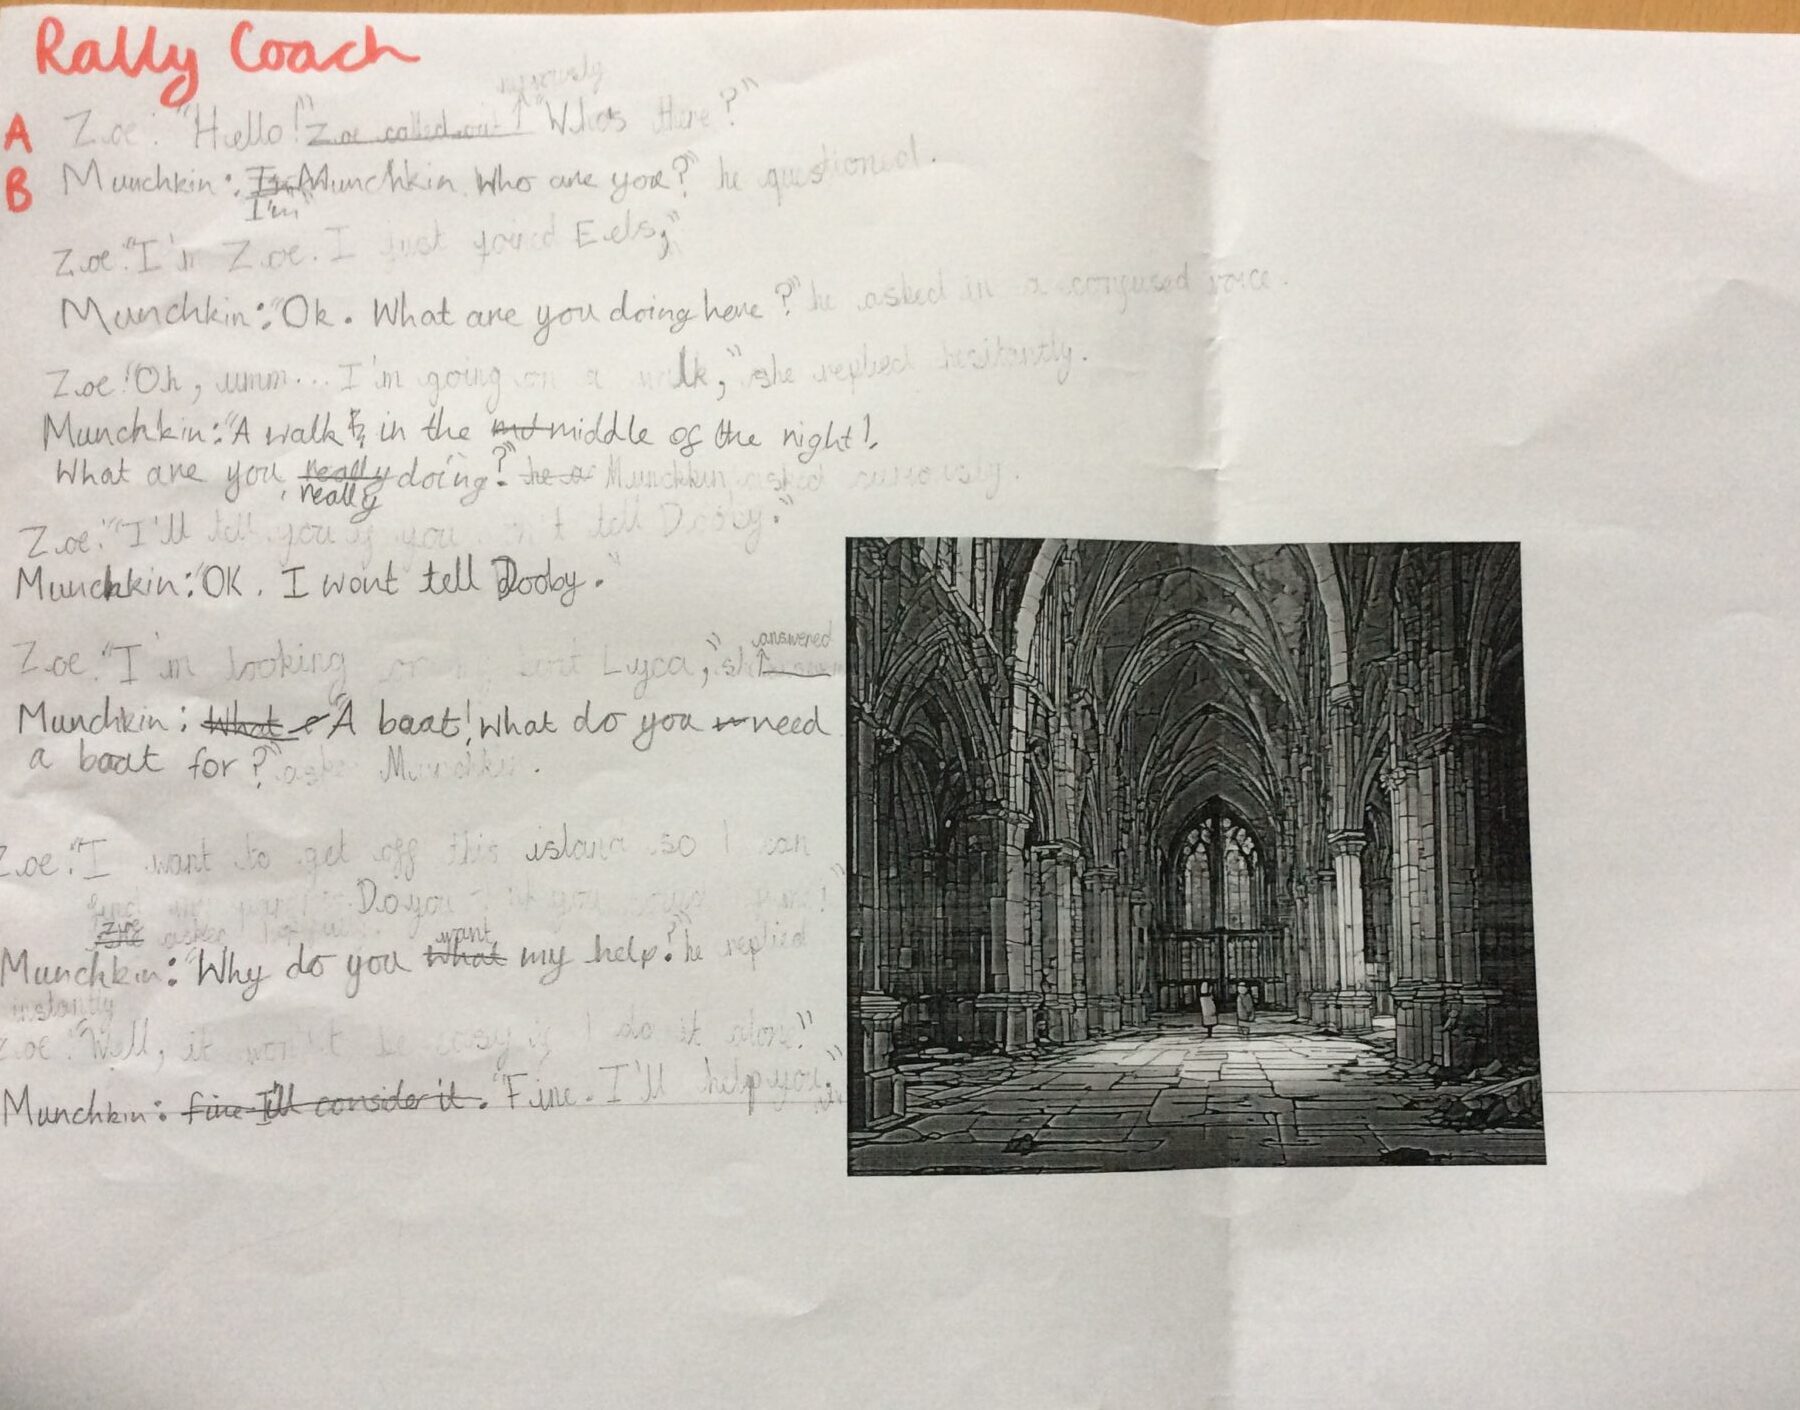 Rally Coach
nervously
A Zoe: "Hello!" Zoe called out ↑ "Who's there?"
B Munchkin: Munchkin. Who are you?" he questioned.
I'm"
Zoe: "I'm Zoe. I just joined Eels,"
Munchkin: "Ok. What are you doing here?" he asked in a confused voice.
Zoe: "Oh, umm... I'm going on a walk," she replied hesitantly.
Munchkin: "A walk, in the middle of the night!
What are you really doing?" Munchkin asked curiously.
really
Zoe: "I'll tell you if you don't tell Dooby."
Munchkin: "OK. I wont tell Dooby."
answered
Zoe: "I'm looking for my boat Lyca,"
Munchkin: What "A boat! What do you need
a boat for?" asked Munchkin.
Zoe: "I want to get off this island so I can
find my Do you
Zoe asked
want
Munchkin: "Why do you what my help?" he replied
instantly
Zoe: "Well, it won't be easy if I do it alone!"
Munchkin: fine I'll consider it. "Fine. I'll help you,"